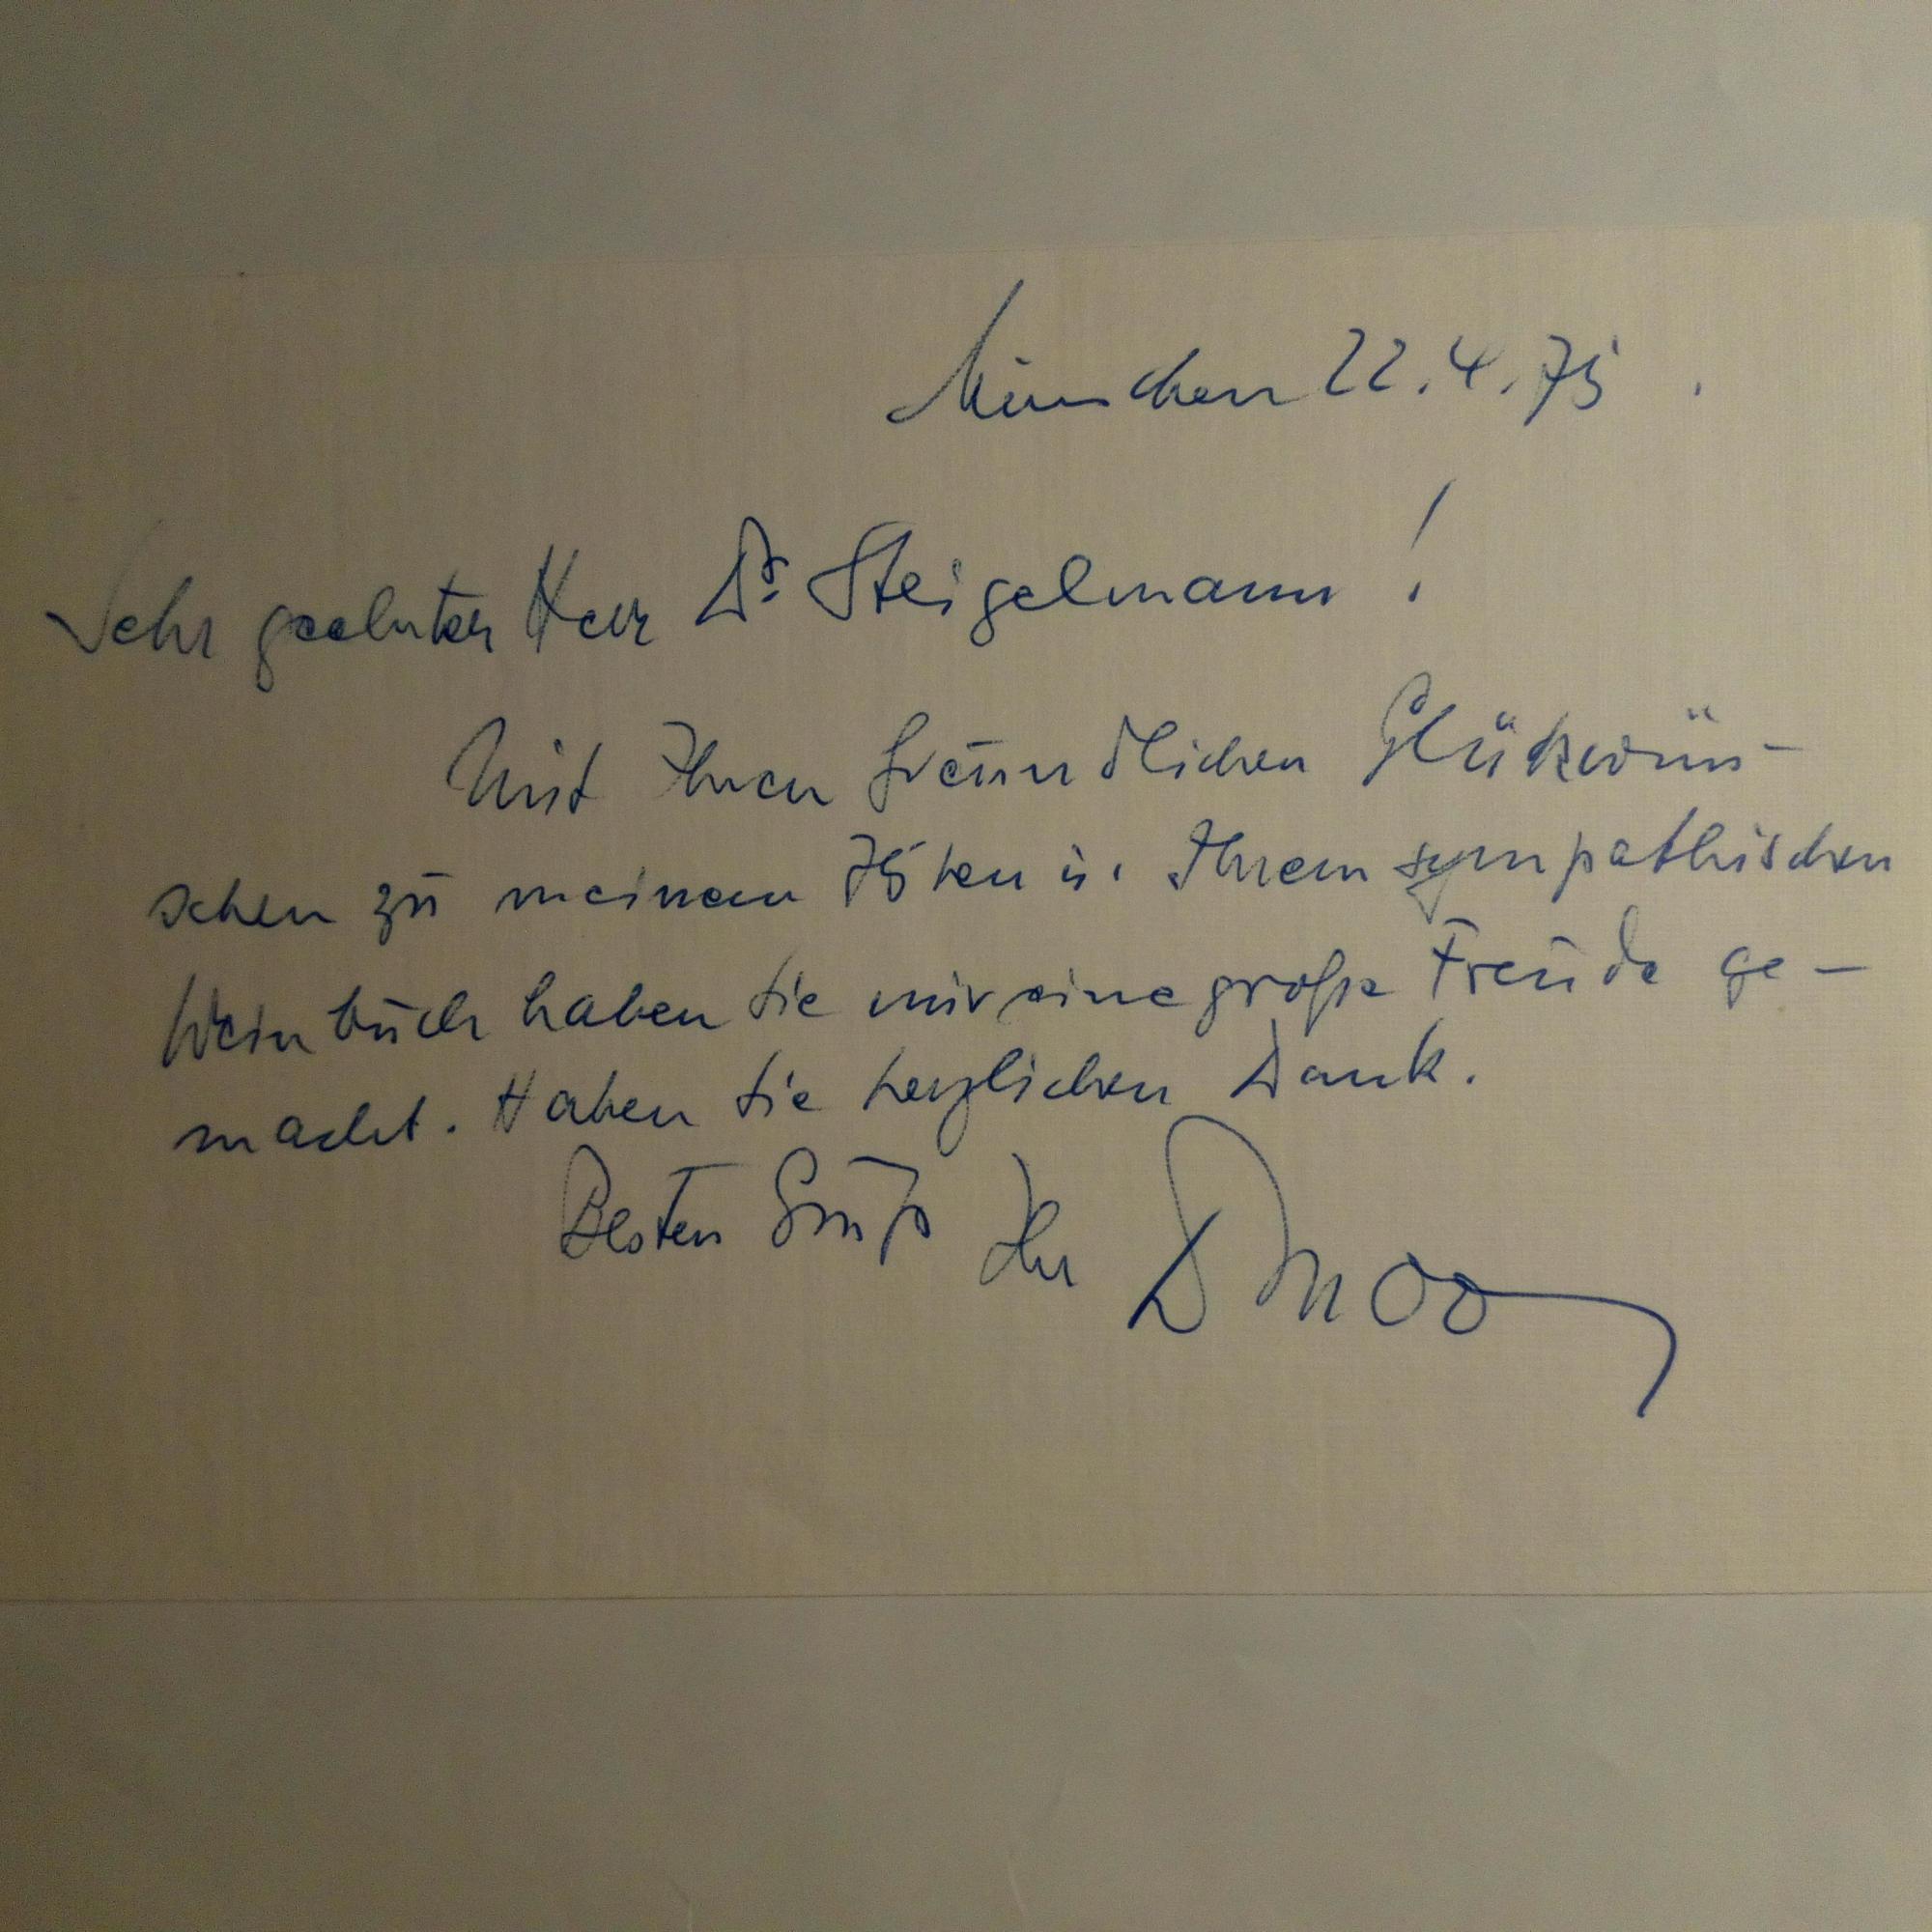 München 22.4.75
Sehr geehrter Herr Dr Steigelmann!
Mit Ihren freundlichen Glükwün-
schen zu meinem 75ten u. Ihrem sympathischen
Weinbuch haben Sie mir eine große Freude ge-
macht. Haben Sie herzlichen Dank.
Besten Gruß Ihr